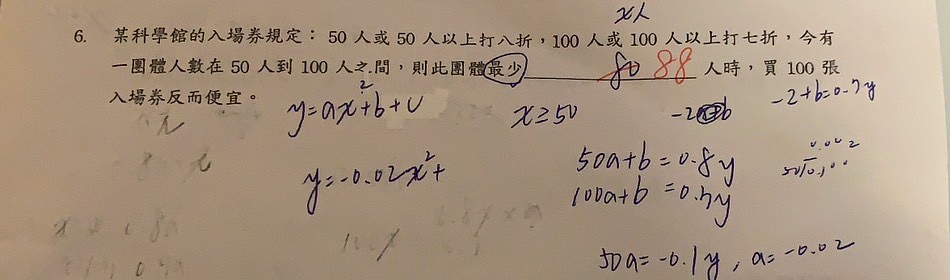 x人
6. 某科學館的入場券規定：50 人或 50 人以上打八折，100 人或 100 人以上打七折，今有
一團體人數在 50 人到 100 人之間，則此團體最少 80 88 人時，買 100 張
入場券反而便宜。
y=ax²+b+c x≥50 -2+b=0.7y
y=-0.02x²+ 50a+b=0.8y
100a+b=0.7y
50a=-0.1y, a=-0.02